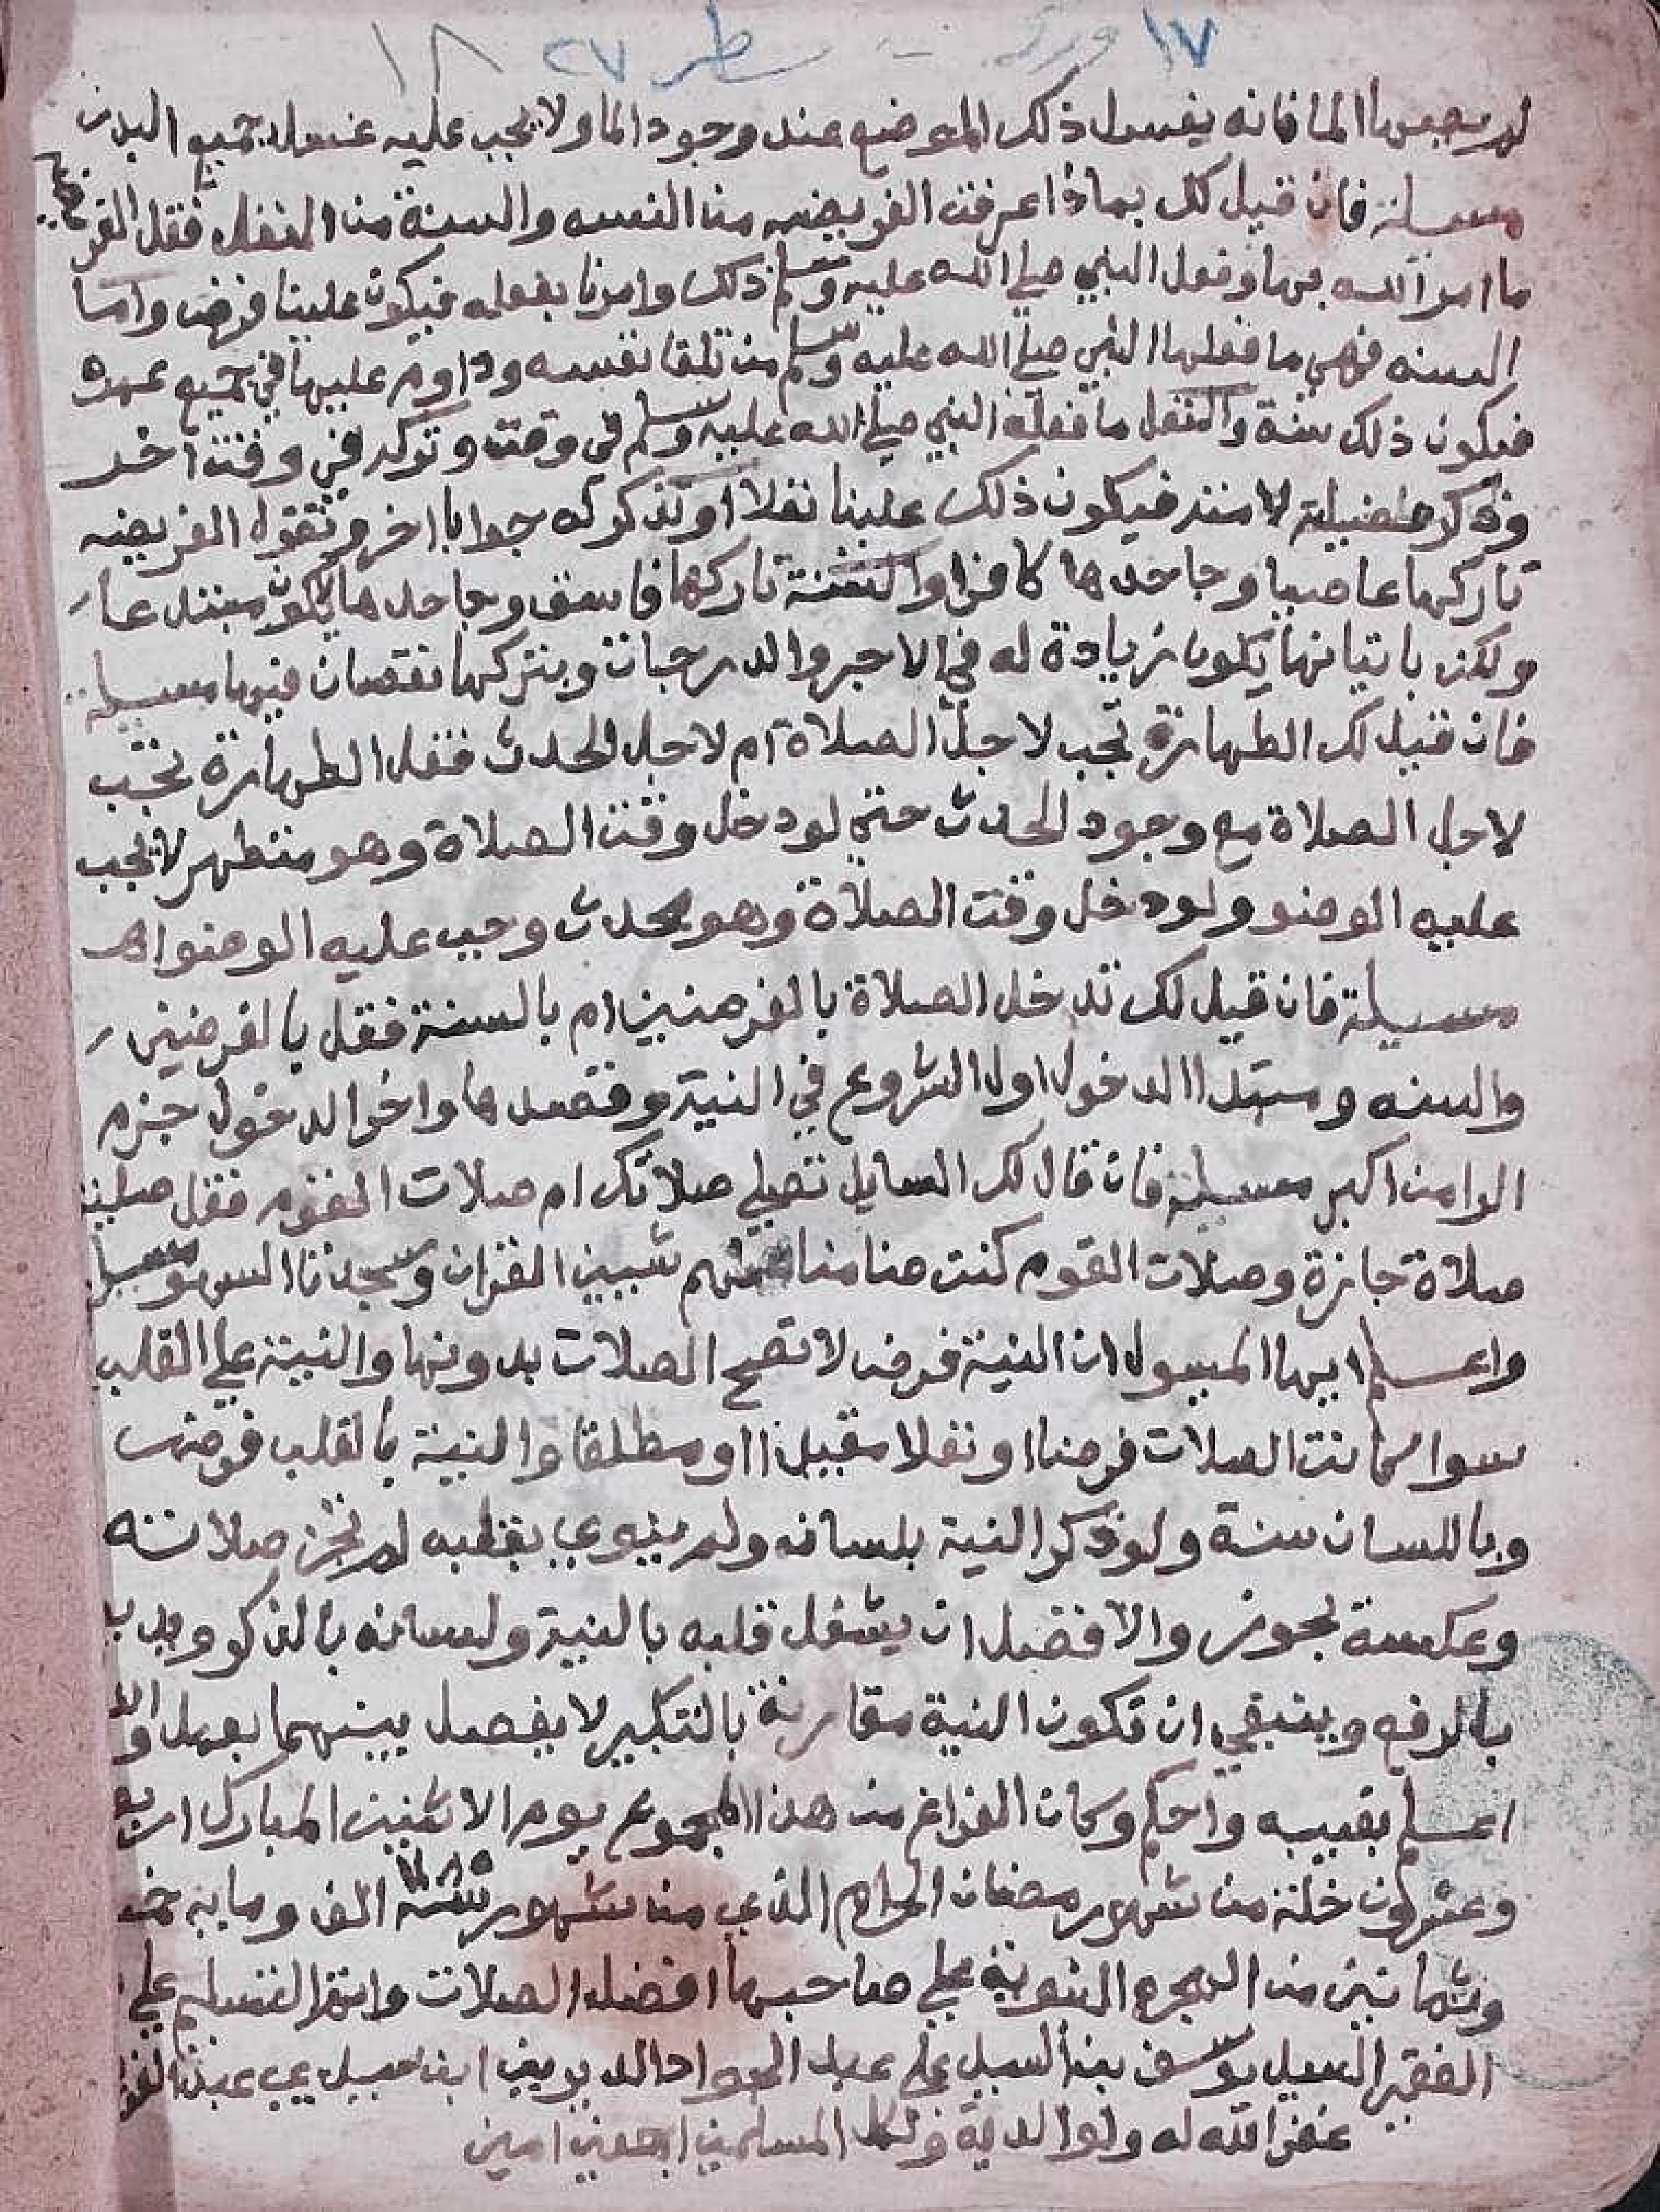 ١٧ ورقه سطر ٢٧ ١٨
لم يصبها الما فانه يغسل ذلك الموضع عند وجود الما ولا يجب عليه غسل جميع البدن
مسيلة فان قيل لك بماذا عرفت الفريضه من السنه والسنة من النفل فقل الفرض
ما امر الله بها وفعل النبي صلي الله عليه وسلم ذلك وامرنا بفعله فيكون علينا فرض واما
السنه فهي ما فعلها النبي صلي الله عليه وسلم من تلقا نفسه وداوم عليها في جميع عمره
فيكون ذلك سنة والنفل ما فعله النبي صلي الله عليه وسلم في وقت وتركه في وقت اخر
وذكر فضيلة لامته فيكون ذلك علينا نفلا او تذكر له جوابا اخر وتقول الفريضه
تاركها عاصيا وجاحدها كافرا والسنة تاركها فاسق وجاحدها يكون مبتدعا
ولكن باتيانها يكون زيادة له في الاجر والدرجات وبتركها نقصان فيها مسيلة
فان قيل لك الطهارة تجب لاجل الصلاة ام لاجل الحدث فقل الطهارة تجب
لاجل الصلاة مع وجود الحدث حتي لو دخل وقت الصلاة وهو متطهر لا يجب
عليه الوضو ولو دخل وقت الصلاة وهو محدث وجب عليه الوضو اهـ
مسيلة فان قيل لك تدخل الصلاة بالفرضين ام بالسنة فقل بالفرضين
والسنه ومبتدا الدخول اول الشروع في النية وقصدها واخر الدخول جزم
الرا من اكبر مسيلة فان قال لك السايل تصلي صلاتك ام صلات القوم فقل صليت
صلاة جايزة وصلات القوم كنت ضامنا منهم شيين القران وسجدتا السهو مسيلة
واعلم ايها المسيول ان النية فرض لا تصح الصلات بدونها والنية علي القلب
سوا كانت الصلات فرضا او نفلا مقيدا او مطلقا والنية بالقلب فرض
وباللسان سنة ولو ذكر النية بلسانه ولم ينوي بقلبه لم تجز صلاته
وعكسة يجوز والافضل ان يشغل قلبه بالنية ولسانه بالذكر ويديه
بالرفع وينبغي ان تكون النية مقارنة بالتكبير لا يفصل بينهما بعمل والله
اعلم بغيبه واحكم وكان الفراغ من هذا المجموع يوم الاثنين المبارك اربع
وعشرون خلة من شهر رمضان الحرام الذي من شهور سنة الف ومايه خمس
وثمانين من الهجرة النبوية علي صاحبها افضل الصلات واتم التسليم علي يد
الفقير السيد يوسف بن السيد علي عبد الجواد الدبويني ابن سيدي
غفر الله له ولوالدية ولكل المسلمين اجمعين امين